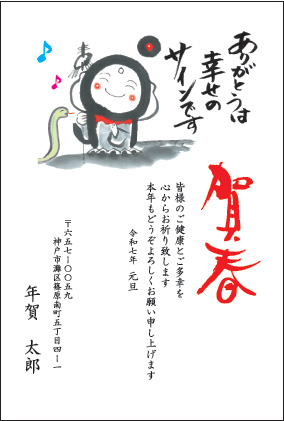 ありがとうは
幸せの
サインです
賀春
皆様のご健康とご多幸を
心からお祈り致します
本年もどうぞよろしくお願い申し上げます
令和七年 元旦
〒六五七-〇〇五九
神戸市灘区篠原南町五丁目四-一
年賀 太郎